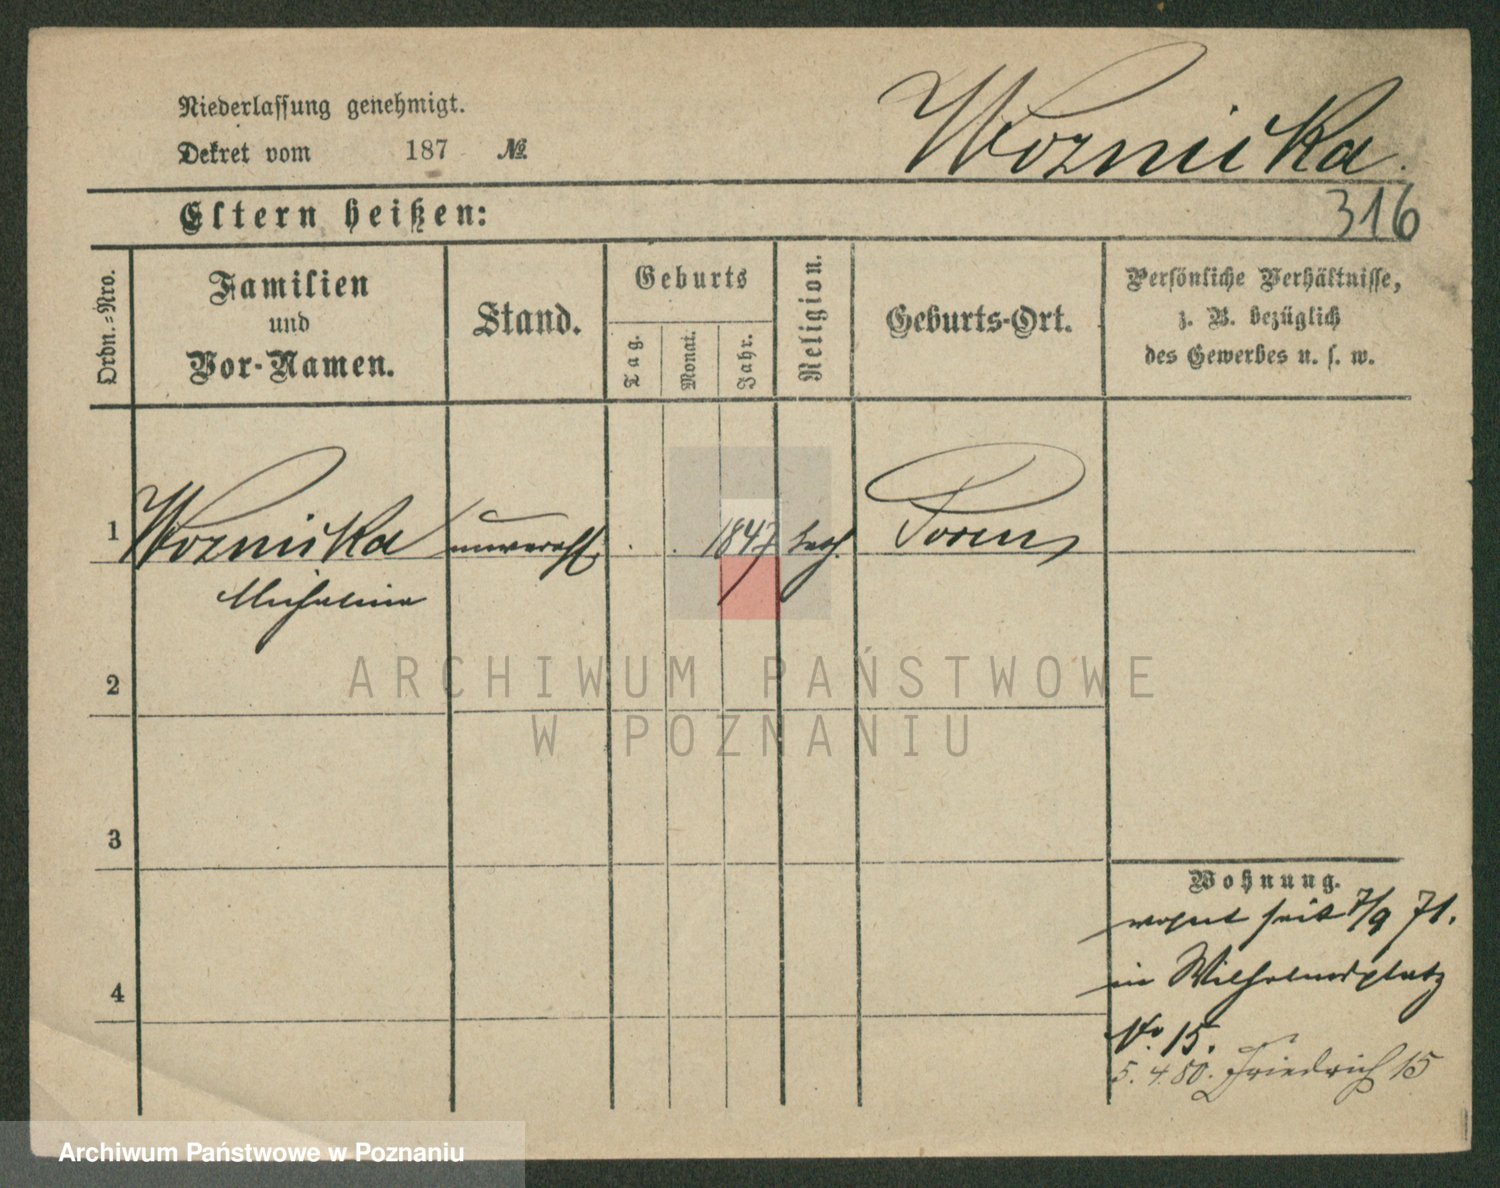 Niederlassung genehmigt.
Woznicka.
Dekret vom 187 №
316
Eltern heißen:
Ordn.-Nro.
Familien
und
Vor-Namen.
Stand.
Geburts
Tag.
Monat.
Jahr.
Religion.
Geburts-Ort.
Persönliche Verhältnisse,
z. B. bezüglich
des Gewerbes u. s. w.
1 Woznicka unvereh 1847 kath. Posen
Michalina
2
ARCHIWUM PAŃSTWOWE
W POZNANIU
3
Wohnung.
wohnt seit 7/9 71.
4
in Wilhelmsplatz
No 15.
5. 4. 80. Friedrich 15
Archiwum Państwowe w Poznaniu